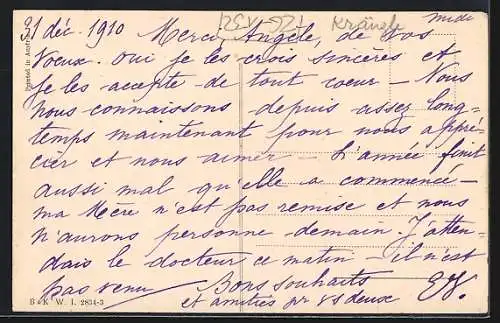 31 déc. 1910
midi
Merci Angèle, de vos
voeux. Oui je les crois sincères et
je les accepte de tout coeur – Nous
nous connaissons depuis assez long-
temps maintenant pour nous appré-
cier et nous aimer – L'année finit
aussi mal qu'elle a commencé –
ma Mère n'est pas remise et nous
n'aurons personne demain. J'atten-
dais le docteur ce matin – il n'est
pas venu
Bons souhaits
et amitiés pr vs deux
B & K W. I. 2834-3
Printed in